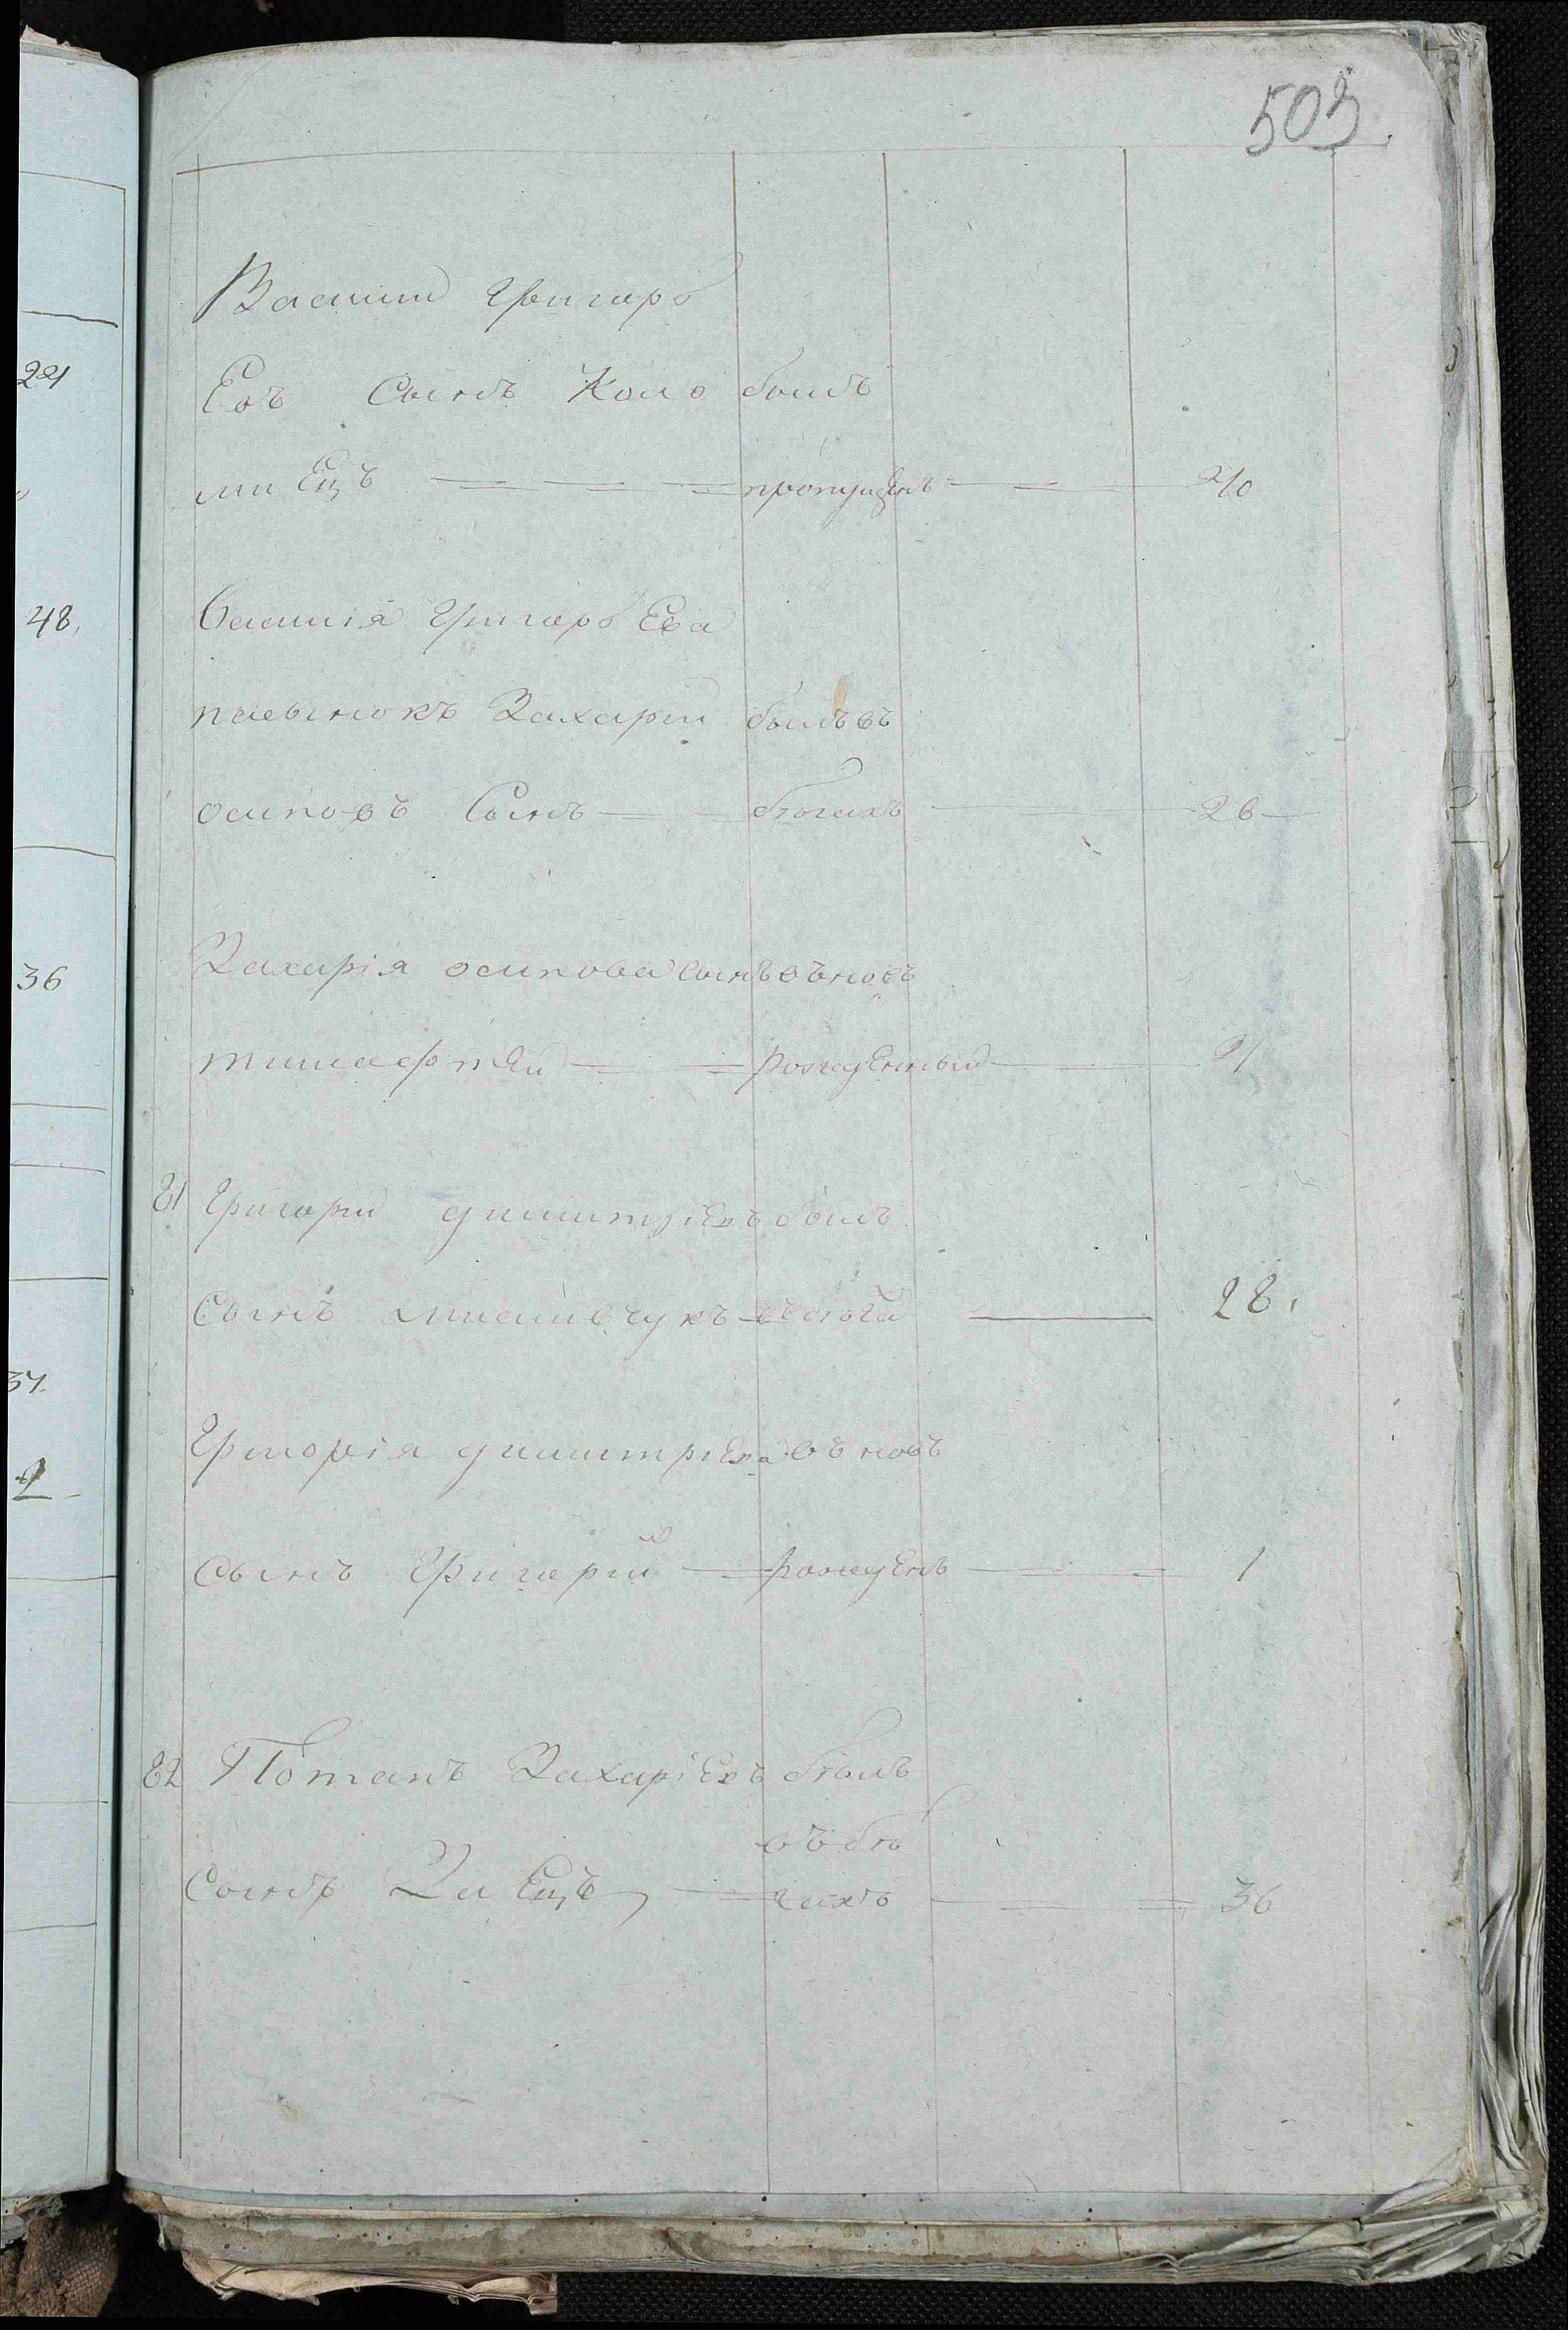 503.
Василий Григорь
Евъ Сынъ Коло былъ
миЕцъ пропущенъ 40
Василія ГригорьЕва
пасынокъ Захарий былъ въ
осиповъ Сынъ бѣгахъ 26
Захарія осипова сынъ вновь
тимофѣй рожденный
81 Григорий димитріЕвъ былъ
сынъ въ бѣга 28.
Григорія димитріЕва въновь
сынъ Григорий рожденъ 1
82 Потапъ ЗахаріЕвъ былъ
въ бѣ
сынъ ЗаЕцъ гахъ 36
48.
36